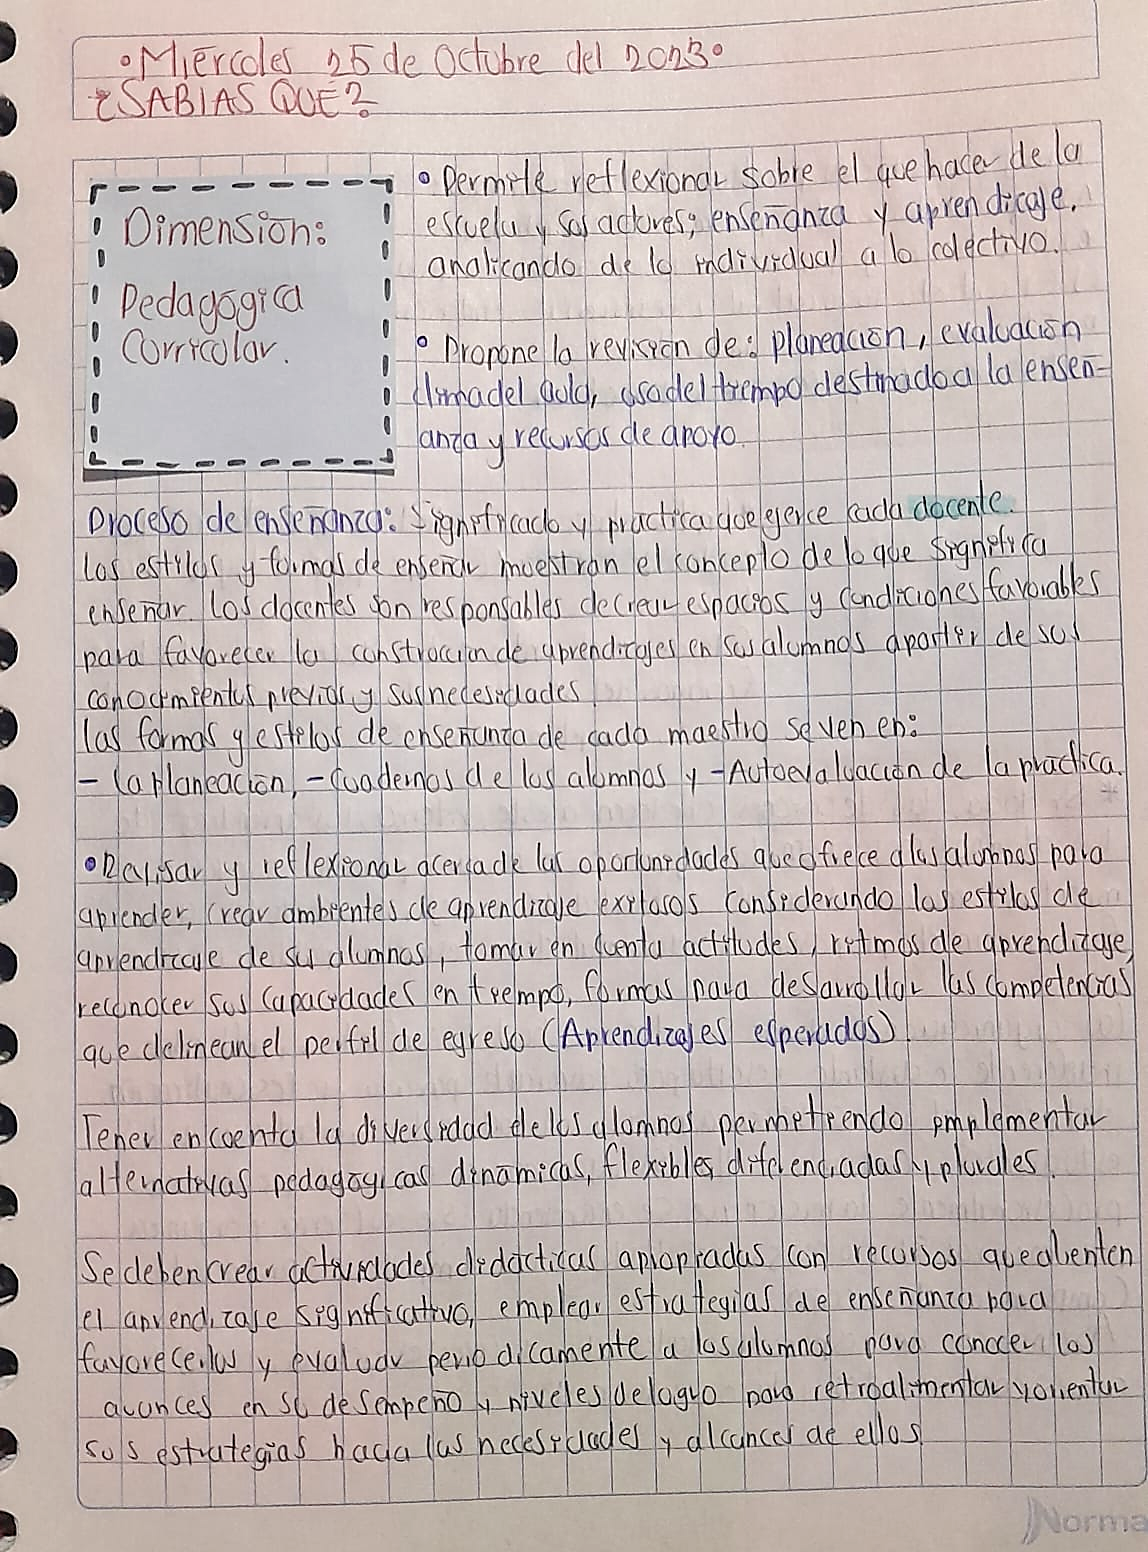 °Miércoles 25 de Octubre del 2023°
¿SABIAS QUÉ?
Dimensión:
Pedagógica
Curricular.
• Permite reflexionar sobre el que hacer de la
escuela y sus actores; enseñanza y aprendizaje.
analizando de lo individual a lo colectivo.
• Propone la revisión de: planeación, evaluación
clima del aula, uso del tiempo destinado a la enseñ-
anza y recursos de apoyo.
Proceso de enseñanza: Significado y practica que ejerce cada docente.
Los estilos y formas de enseñar muestran el concepto de lo que significa
enseñar. Los docentes son responsables de crear espacios y condiciones favorables
para favorecer la construcción de aprendizajes en sus alumnos a partir de sus
conocimientos previos y sus necesidades
las formas y estilos de enseñanza de cada maestro se ven en:
- la planeación, - Cuadernos de los alumnos y - Autoevaluación de la práctica.
*
• Revisar y reflexionar acerca de las oportunidades que ofrece a los alumnos para
aprender, crear ambientes de aprendizaje exitosos considerando los estilos de
aprendizaje de su alumnos, tomar en cuenta actitudes, ritmos de aprendizaje,
reconocer sus capacidades en tiempo, formas para desarrollar las competencias
que delinean el perfil de egreso (Aprendizajes esperados).
Tener en cuenta la diversidad de los alumnos permitiendo implementar
alternativas pedagógicas dinámicas, flexibles, diferenciadas y plurales.
Se deben crear actividades didácticas apropiadas con recursos que alienten
el aprendizaje significativo, emplear estrategias de enseñanza para
favorecerlos y evaluar periodicamente a los alumnos para conocer los
avances en su desempeño y niveles de logro para retroalimentar y orientar
sus estrategias hacia las necesidades y alcances de ellos
Norma